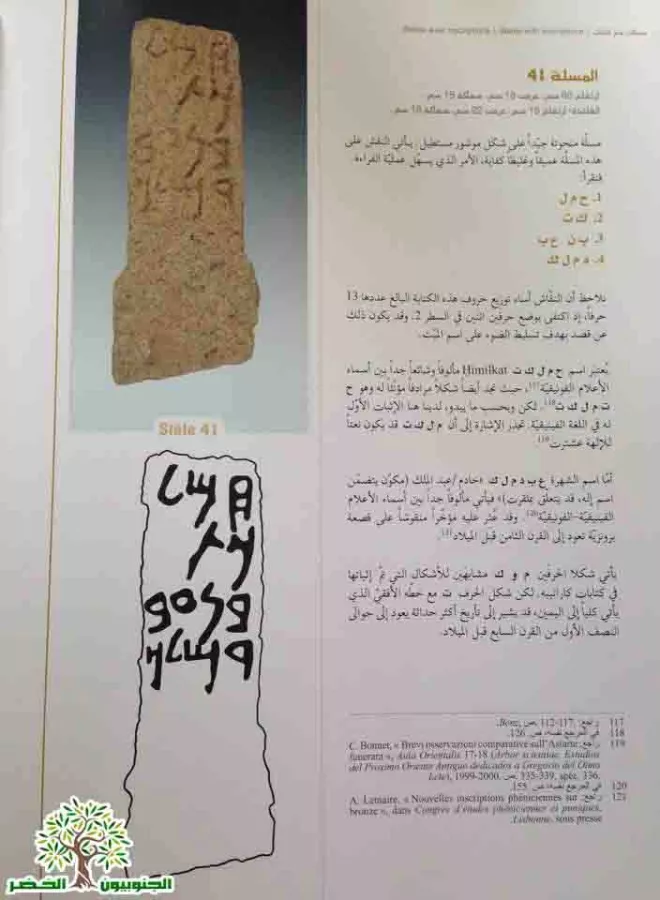 المسلة 41
ارتفاع 60 سم، عرض 19 سم، سماكة 15 سم.
القاعدة: ارتفاع 19 سم، عرض 22 سم، سماكة 19 سم.
مسلّة منحوتة جيّداً على شكل موشور مستطيل. يأتي النقش على
هذه المسلّة عميقاً وغليظاً كفاية، الأمر الذي يسهّل عمليّة القراءة.
فنقرأ:
1. ح م ل
2. ك ت
3. ب ن ع ب
4. د م ل ك
نلاحظ أن النقّاش أساء توزيع حروف هذه الكتابة البالغ عددها 13
حرفاً، إذ اكتفى بوضع حرفين اثنين في السطر 2. وقد يكون ذلك
عن قصد بهدف تسليط الضوء على اسم الميّت.
يُعتبر اسم ح م ل ك ت Ḥimilkat مألوفاً وشائعاً جداً بين أسماء
الأعلام الفونيقيّة117، حيث نجد أيضاً شكلاً مرادفاً مؤنّثاً له وهو ح
ت م ل ك ت118. لكن وبحسب ما يبدو، لدينا هنا الإثبات الأوّل
له في اللغة الفينيقيّة. تجدر الإشارة إلى أن م ل ك ت قد يكون نعتاً
للإلهة عشترت119.
أمّا اسم الشهرة ع ب د م ل ك «خادم/عبد الملك (مكوّن يتضمّن
اسم إله، قد يتعلق بملقرت)» فيأتي مألوفاً جداً بين أسماء الأعلام
الفينيقيّة-الفونيقيّة120. وقد عُثر عليه مؤخّراً منقوشاً على قصعة
برونزيّة تعود إلى القرن الثامن قبل الميلاد121.
يأتي شكلا الحرفين م و ك مشابهين للأشكال التي تمّ إثباتها
في كتابات كاراتيبه. لكن شكل الحرف ت مع خطّه الأفقيّ الذي
يأتي كلياً إلى اليمين، قد يشير إلى تأريخ أكثر حداثة يعود إلى حوالى
النصف الأول من القرن السابع قبل الميلاد.
117 راجع: Benz, ص. 112-117.
118 في المرجع نفسه، ص. 126.
119 راجع: C. Bonnet, « Brevi osservazioni comparative sull'Astarte
funerata », Aula Orientalis 17-18 (Arbor scientiae. Estudios
del Próximo Oriente Antiguo dedicados a Gregorio del Olmo
Lete), 1999-2000, ص. 335-339, spéc. 336.
120 في المرجع نفسه، ص. 155.
121 راجع: A. Lemaire, « Nouvelles inscriptions phéniciennes sur
bronze », dans Congrès d'études phéniciennes et puniques,
Lisbonne, sous presse.
Stèle 41
الجنوبيون الخضر